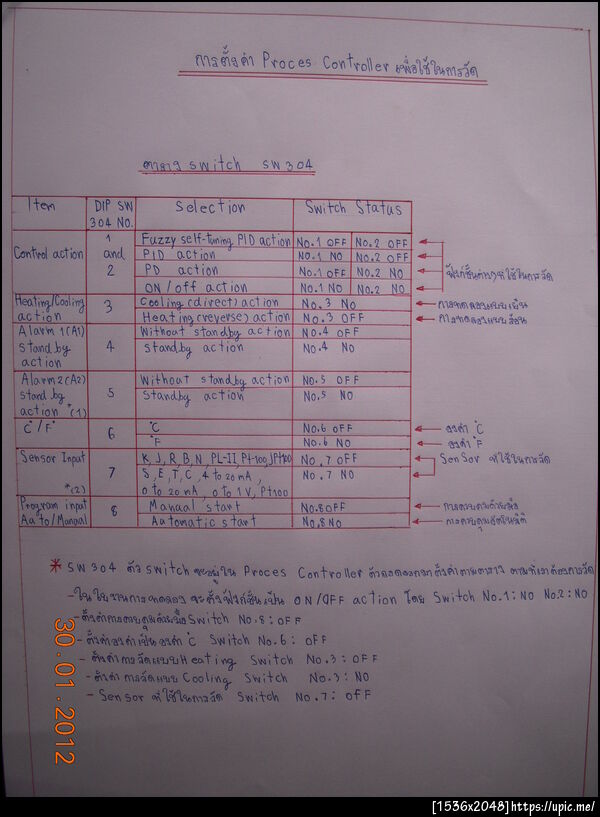 การตั้งค่า Proces Controller เพื่อใช้ในการวัด
ตาราง switch SW 304
Item DIP SW 304 NO. Selection Switch Status
Control action 1 and 2 Fuzzy self-tuning PID action No.1 OFF No.2 OFF
PID action No.1 NO No.2 OFF
PD action No.1 OFF No.2 NO
ON/off action No.1 NO No.2 NO
ฟังก์ชั่นต่างๆที่ใช้ในการวัด
Heating/Cooling action 3 Cooling (direct) action No.3 NO การทดลองแบบเย็น
Heating (reverse) action No.3 OFF การทดลองแบบร้อน
Alarm 1(A1) standby action 4 Without standby action No.4 OFF
Standby action No.4 NO
Alarm 2(A2) standby action *(1) 5 Without standby action No.5 OFF
Standby action No.5 NO
°C/F° 6 °C No.6 OFF องศา °C
°F No.6 NO องศา °F
Sensor Input *(2) 7 K, J, R, B, N, PL-II, Pt100, JPt100 No.7 OFF Sensor ที่ใช้ในการวัด
S, E, T, C, 4 to 20 mA, No.7 NO
0 to 20 mA, 0 to 1V, Pt100
Program input Auto/Manual 8 Manual start No.8 OFF การควบคุมด้วยมือ
Automatic start No.8 NO การควบคุมอัตโนมัติ
* SW 304 ตัว switch จะอยู่ใน Proces Controller ตัวถอดออกมาตั้งค่าตามตาราง ตามที่เราต้องการวัด
- ในใบงานการทดลอง จะตั้งฟังก์ชั่นเป็น ON/OFF action โดย Switch No.1: NO No.2: NO
- ตั้งค่าการควบคุมด้วยมือ Switch No.8: OFF
- ตั้งค่าองศาเป็นองศา °C Switch No.6: OFF
- ตั้งค่าการวัดแบบ Heating Switch No.3: OFF
- ตั้งค่าการวัดแบบ Cooling Switch No.3: NO
- Sensor ที่ใช้ในการวัด Switch No.7: OFF
30.01.2012
[1536x2048]https://upic.me/